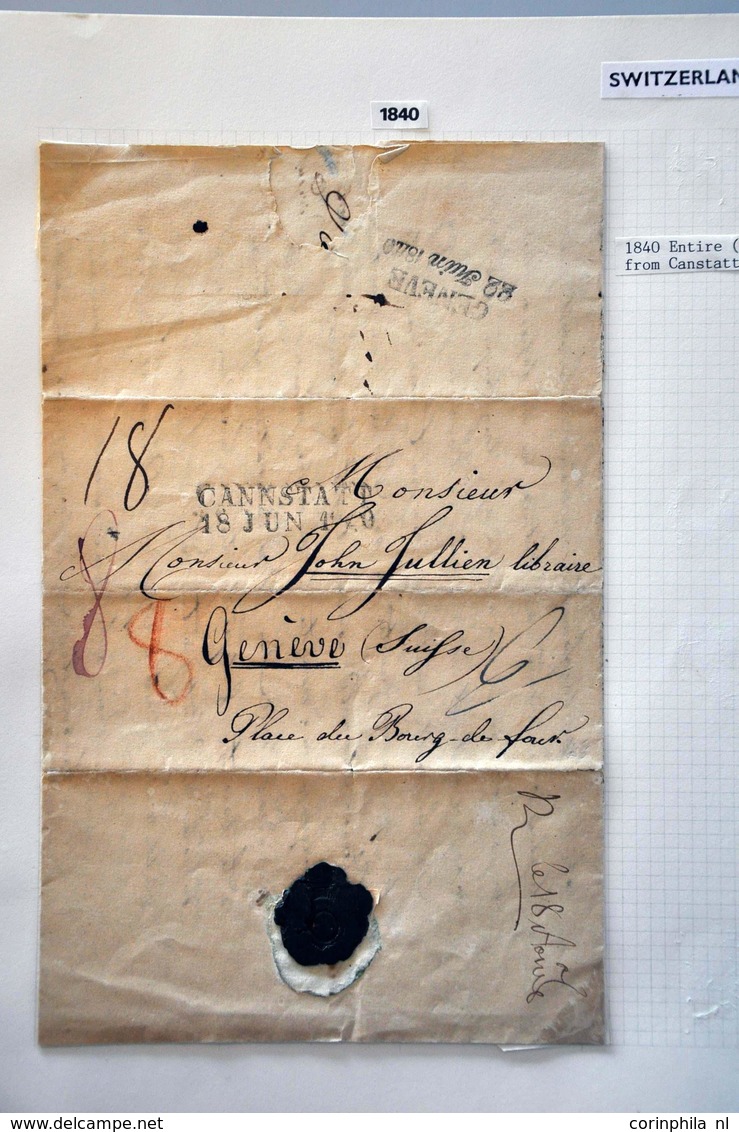 SWITZERLAN
1840
1840 Entire (
from Canstatt
GENEVE
22 Juin 1840
18
CANNSTATT
18 JUN 1840
Monsieur
Monsieur John Jullien libraire
8
8
Genève (Suisse)
6
Place du Bourg-de four.
R
le 18 Aout
corinphila nl